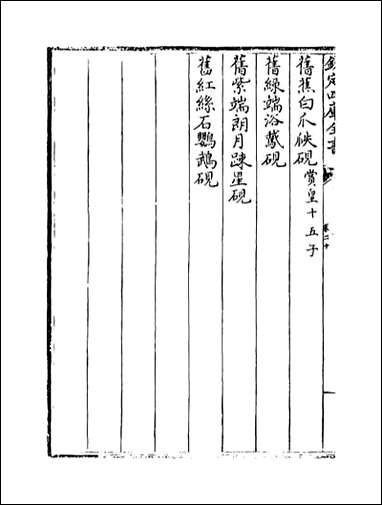 欽定四庫全書
卷二十
舊蕉白瓜瓞硯賞皇十五子
舊綠端浴鵞硯
舊紫端朗月疎星硯
舊紅絲石鸚鵡硯